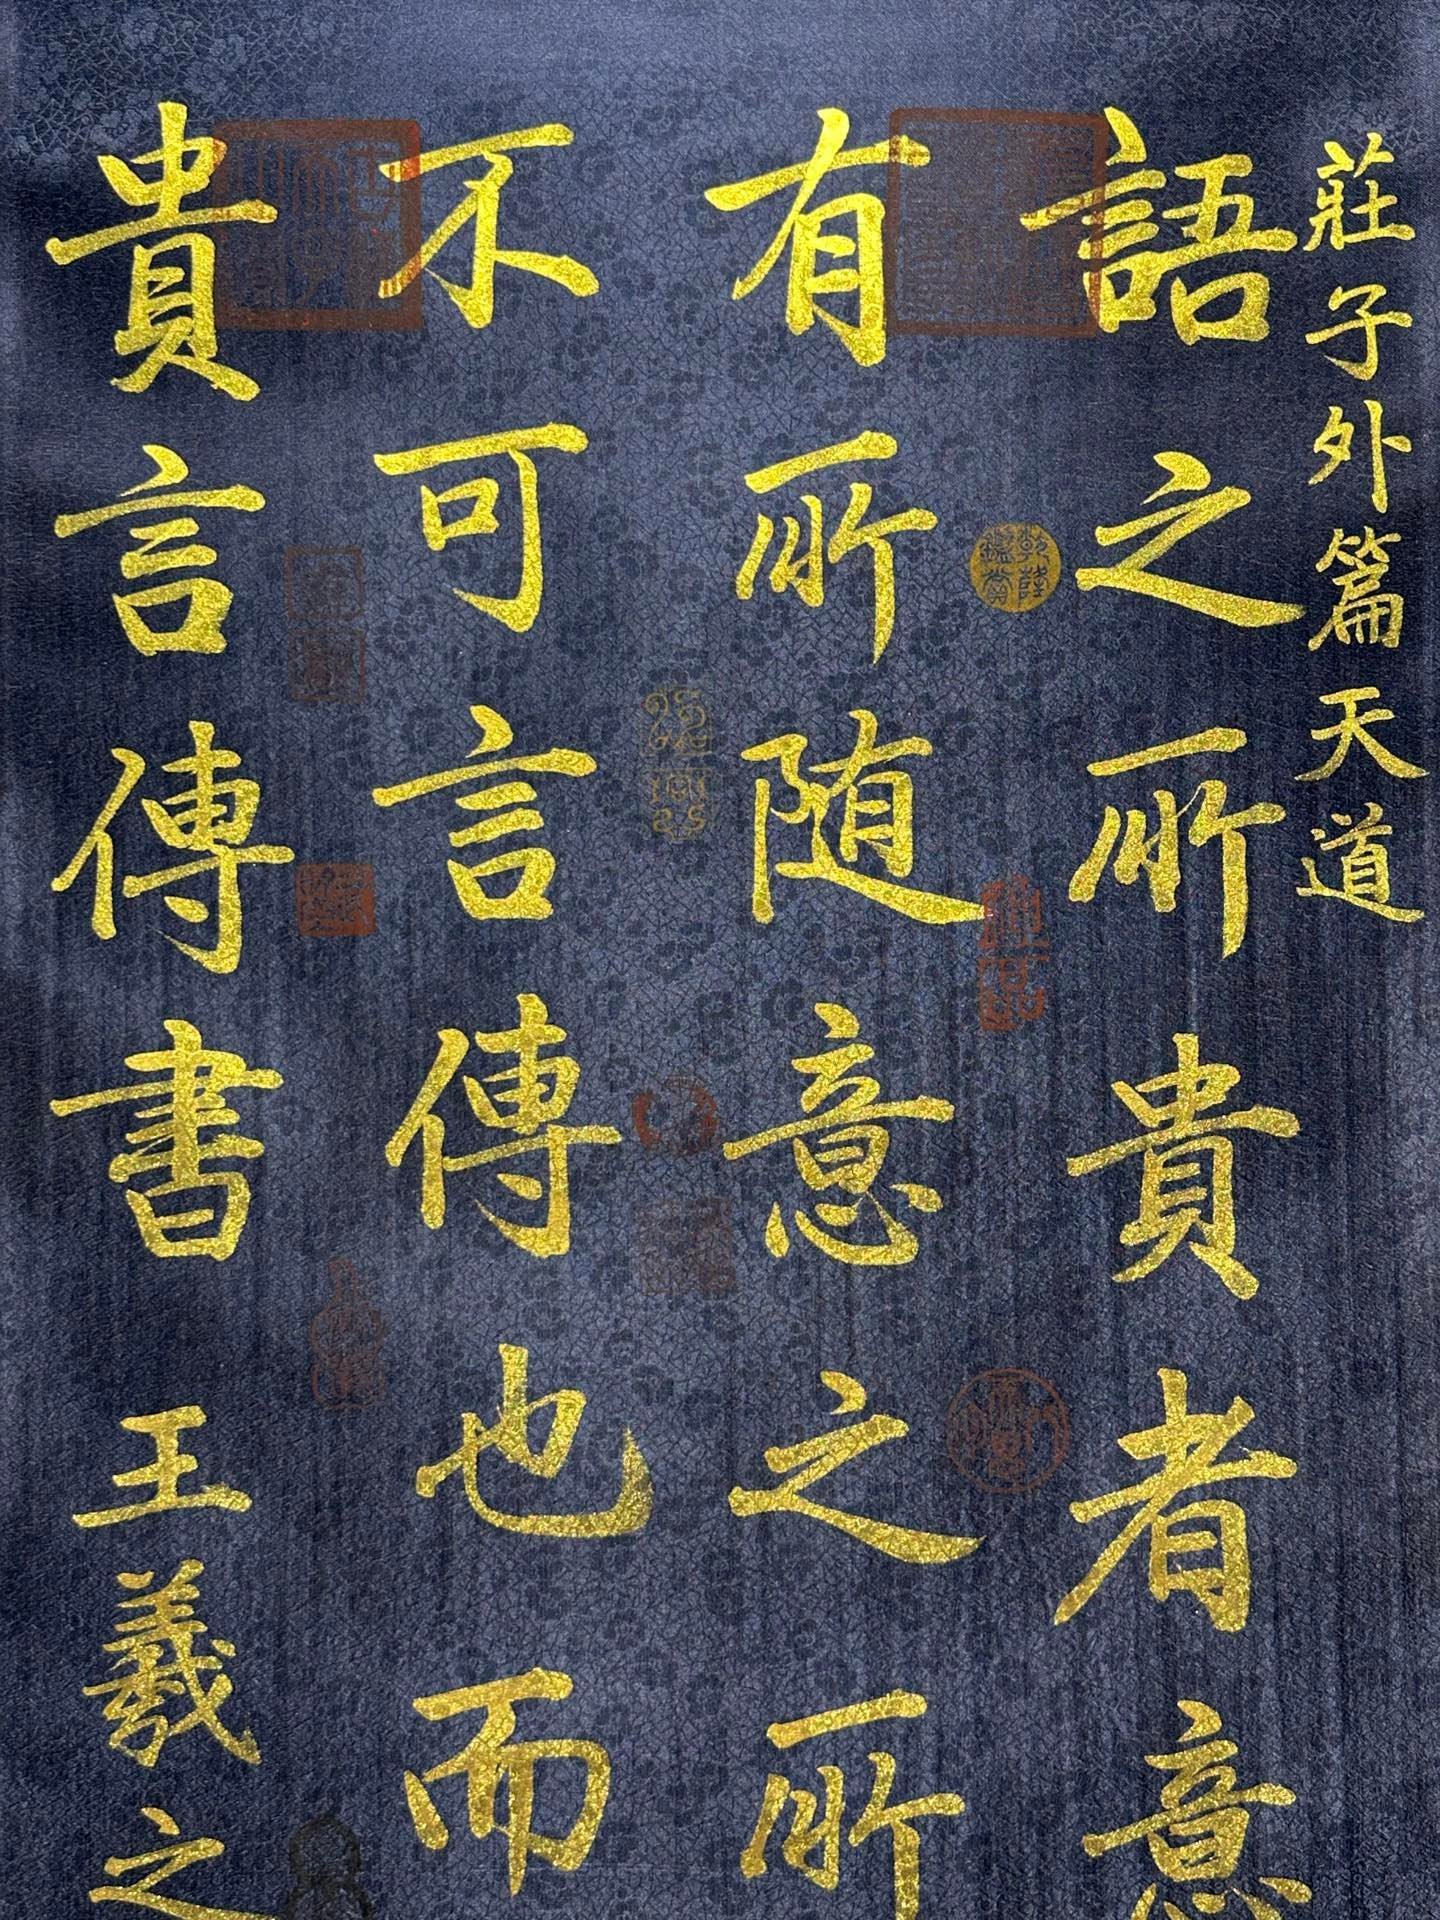 莊子外篇天道
語之所貴者意
有所随意之所
不可言傳也而
貴言傳書 王羲之
乾隆鑑賞